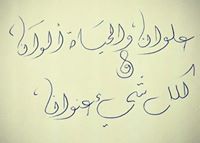 علوان والحياة ألوان
و
لكل شيء عنوان